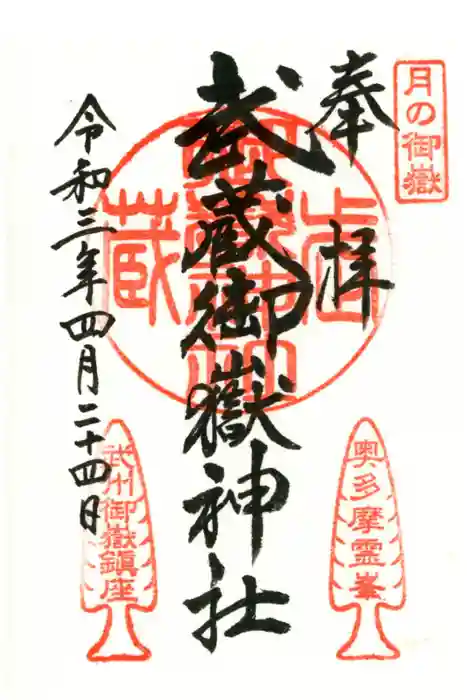 月の御嶽
奉拝
武蔵御嶽神社
令和三年四月二十四日
奥多摩霊峯
武州御嶽鎮座